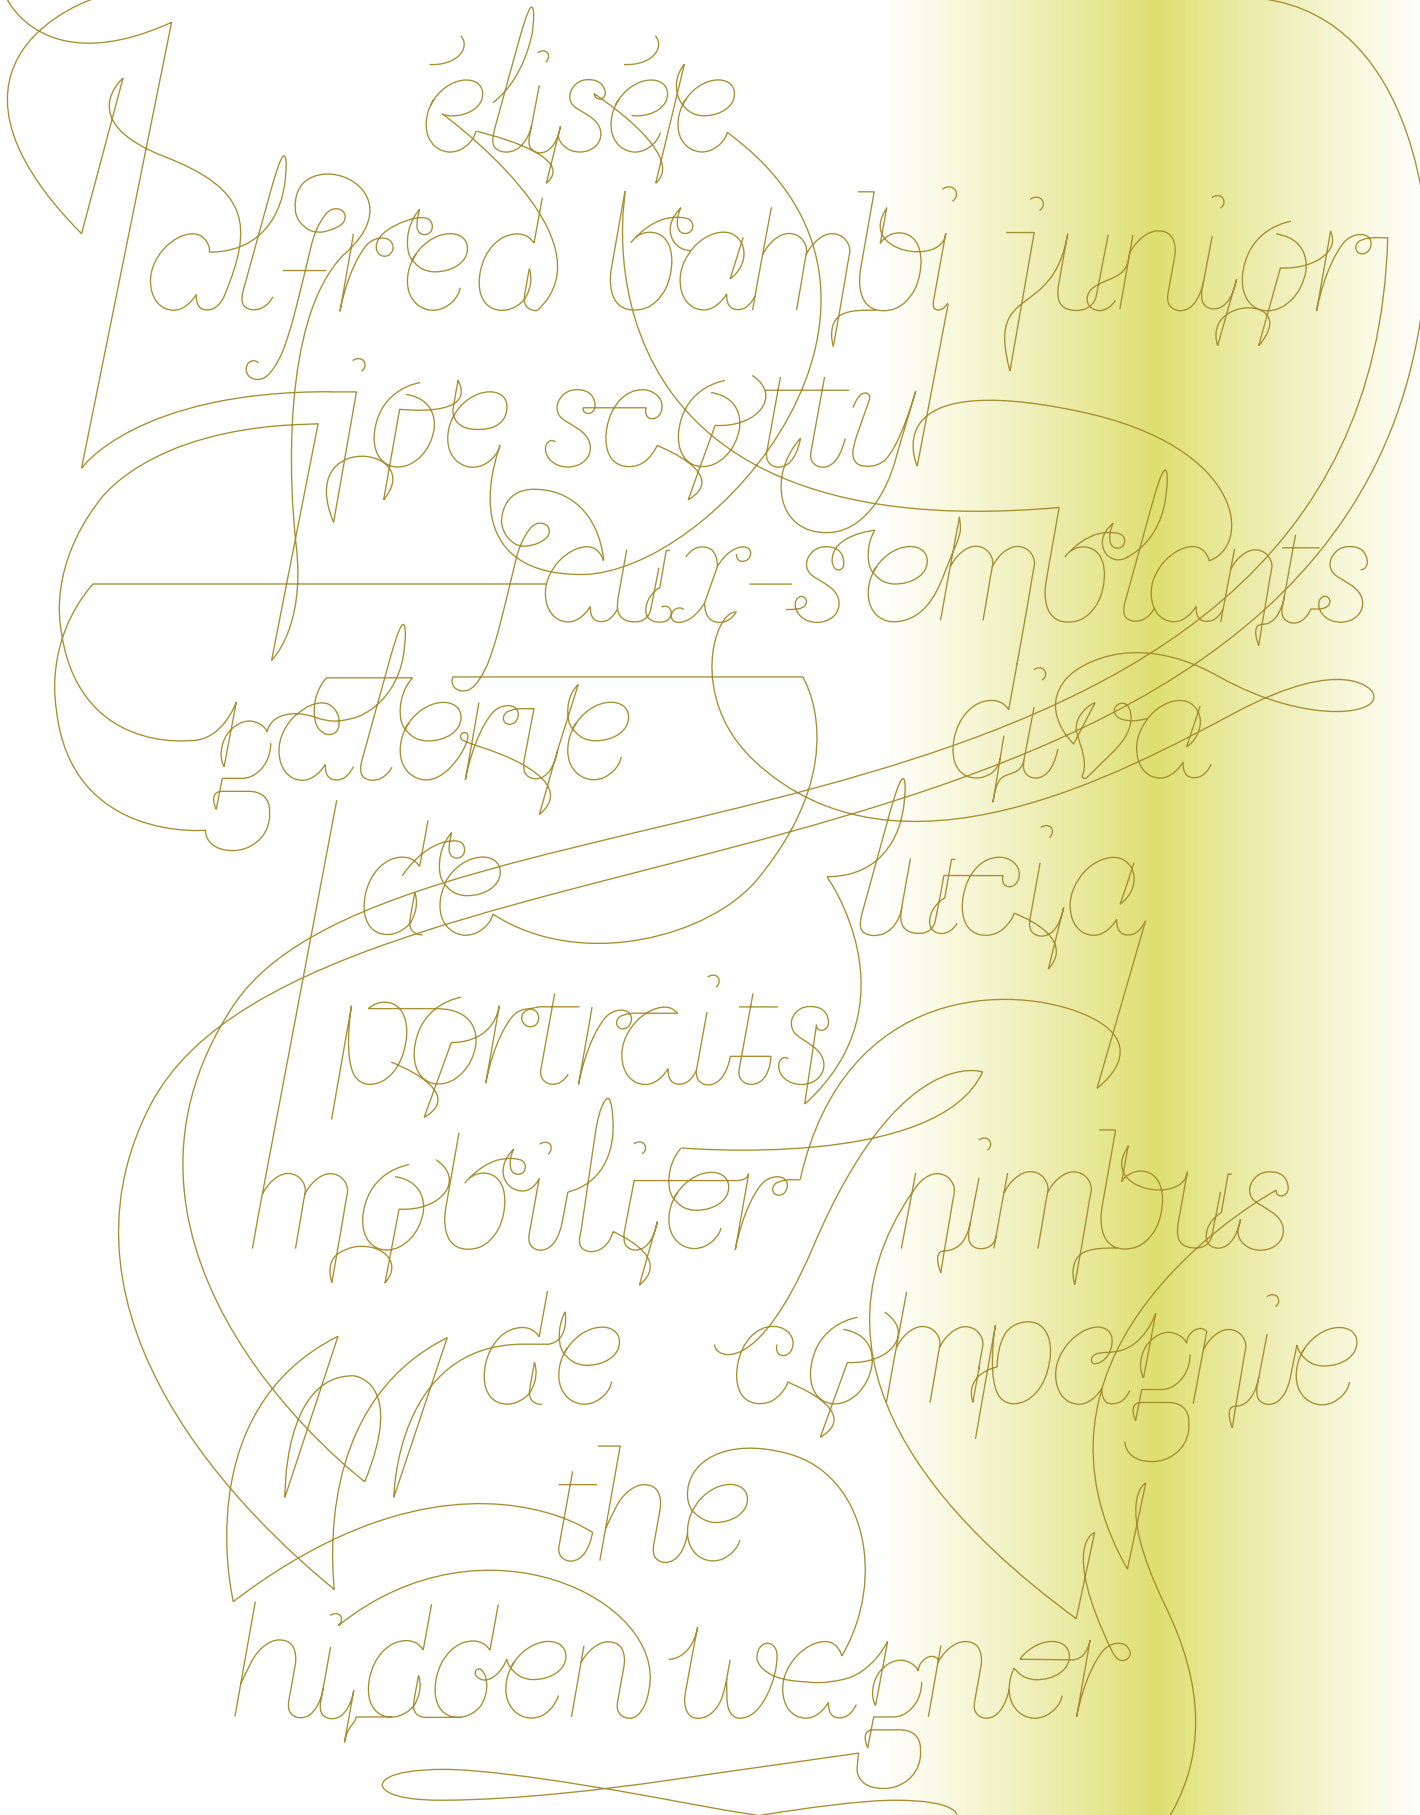 élisée
alfred bambi junior
joe scotty
aux-semblants
galerie diva
de lucia
portraits
mobilier nimbus
de compagnie
the
hidden wagner